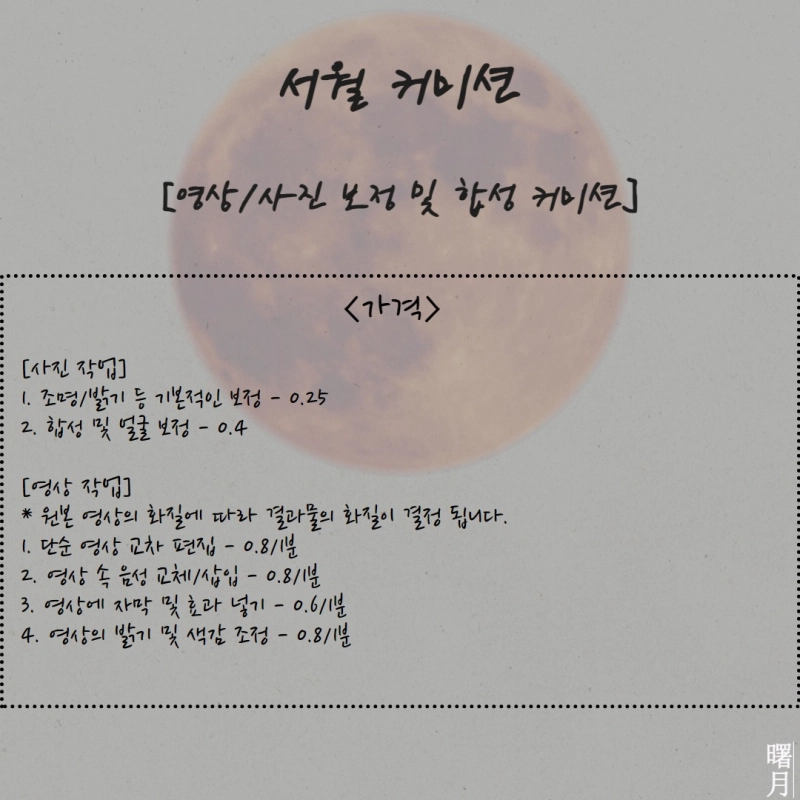 서월 커미션
[영상/사진 보정 및 합성 커미션]
<가격>
[사진 작업]
1. 조명/밝기 등 기본적인 보정 - 0.25
2. 합성 및 얼굴 보정 - 0.4
[영상 작업]
* 원본 영상의 화질에 따라 결과물의 화질이 결정 됩니다.
1. 단순 영상 교차 편집 - 0.8/1분
2. 영상 속 음성 교체/삽입 - 0.8/1분
3. 영상에 자막 및 효과 넣기 - 0.6/1분
4. 영상의 밝기 및 색감 조정 - 0.8/1분
曙
月